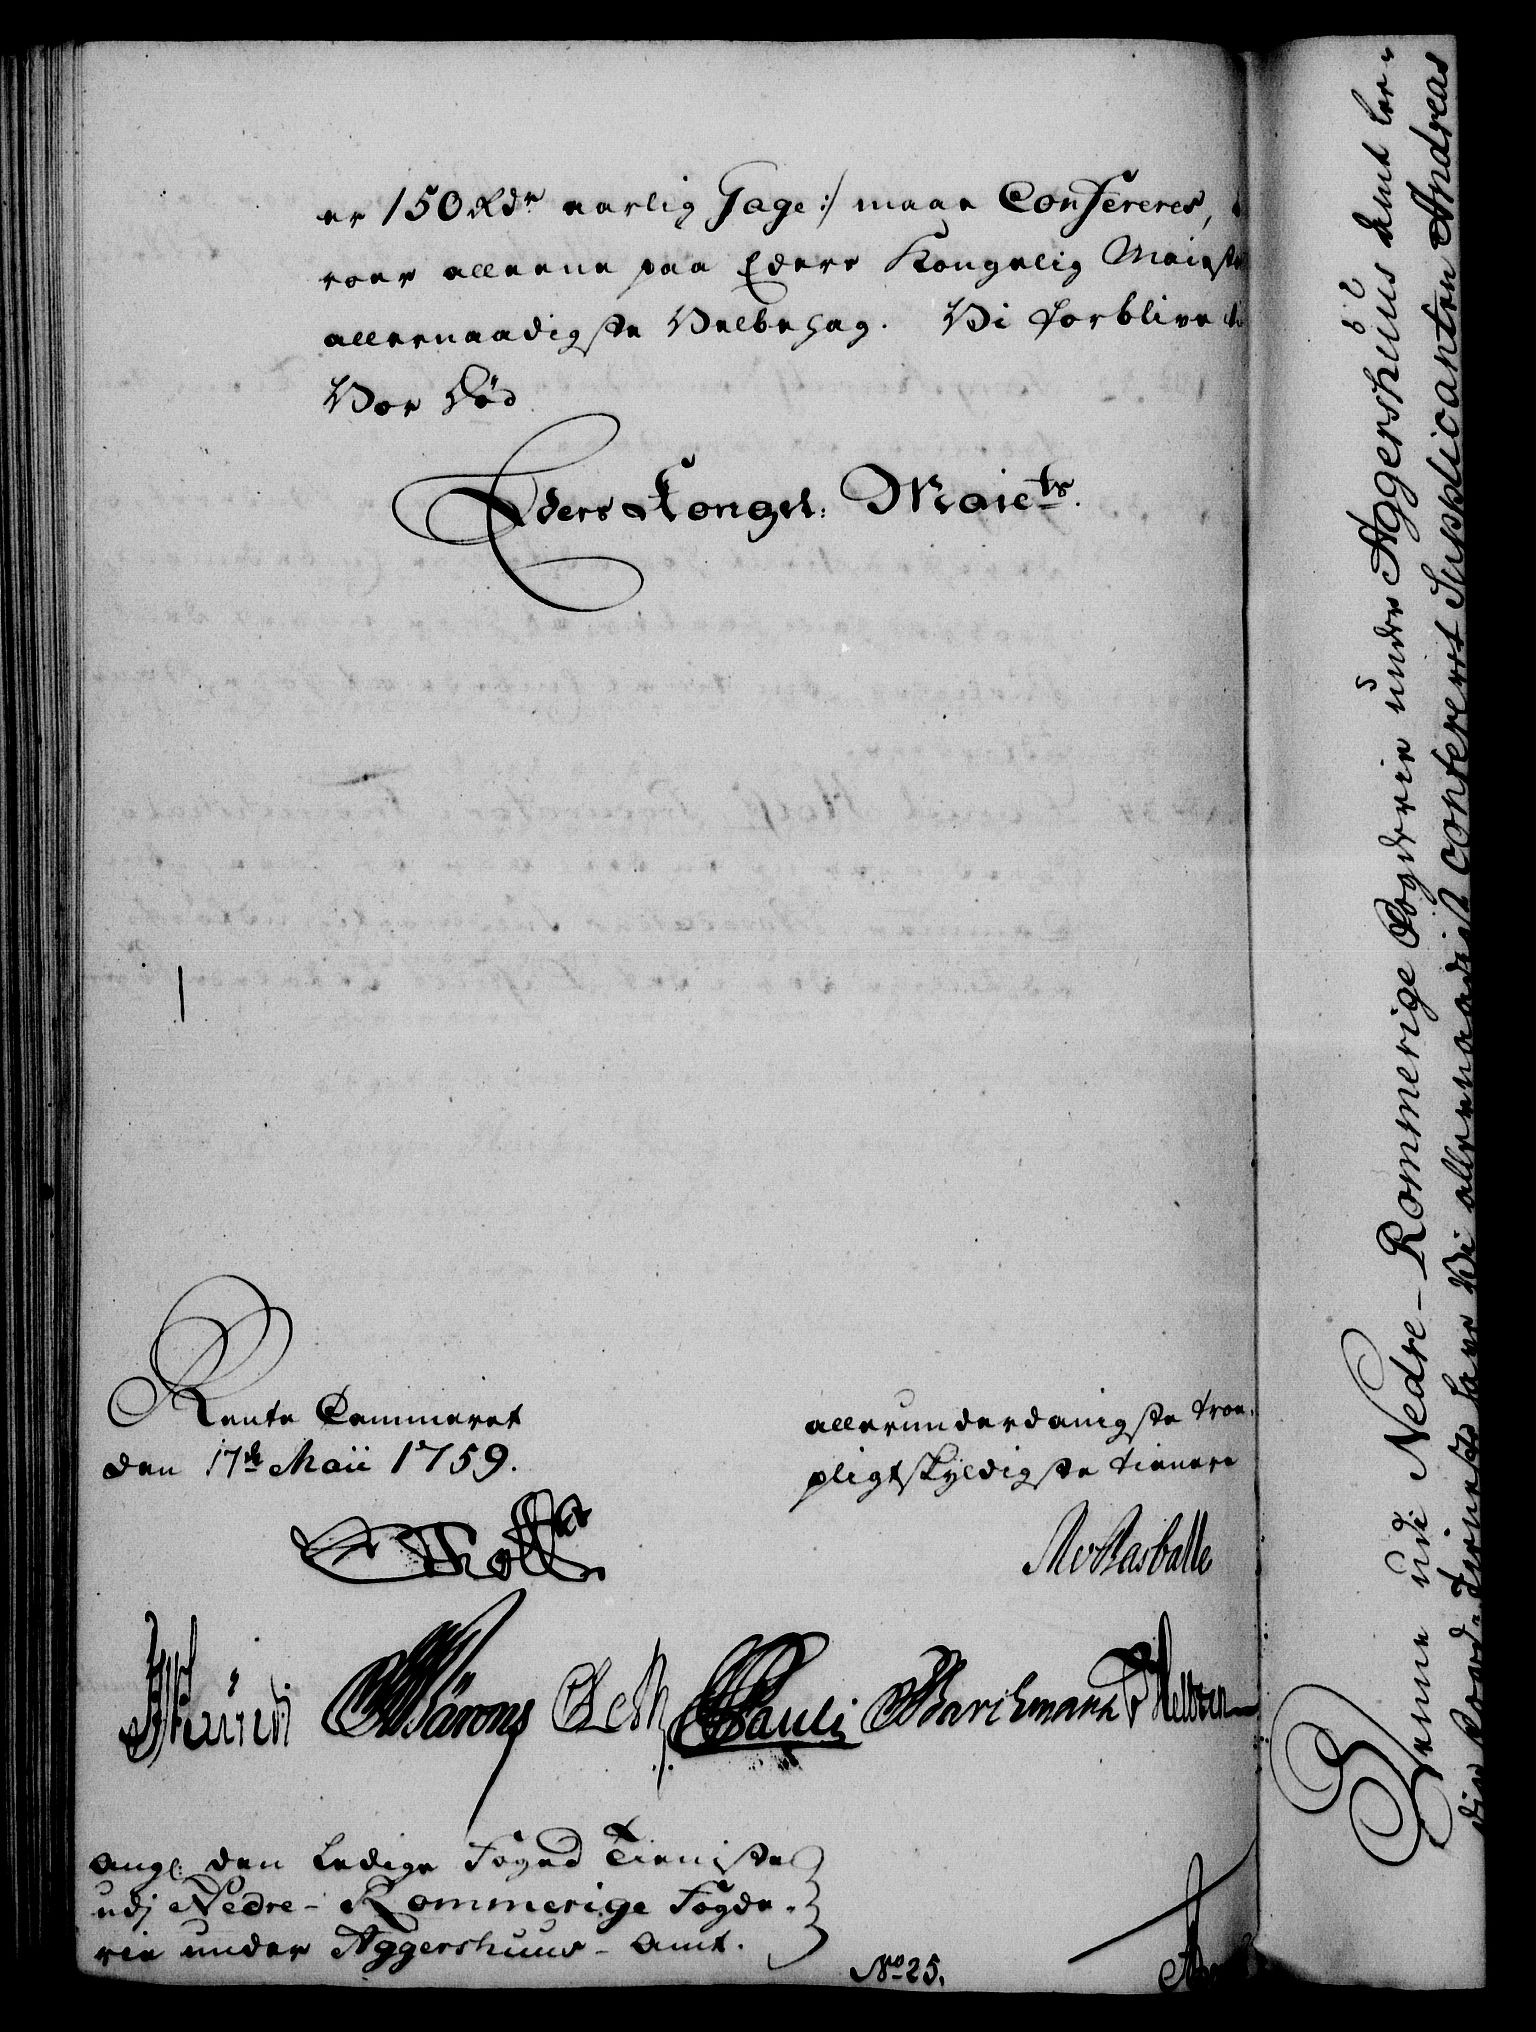 er 150 Rdr aarlig Gage :/ maae Confereres,
roer alleene paa Eders Kongelig Maiests
allernaadigste Velbehag. Vi forblive til
Vor Död
Eders Kongel: Maiets.
Rente Cammeret
den 17de Maii 1759.
allerunderdanigste troe-
pligtskyldigste tienere
Tholt
Bärens Pauli Barchmann
Ang: den Ledige Foged Tieniste
udj Nedre-Rommerige Fogde-
rie under Aggershuus-Amt.
No 25.
udi Nedre-Rommerige Fogderie under Aggershuus Amt
Vi allernaadigst confereret Supplicanten Andreas